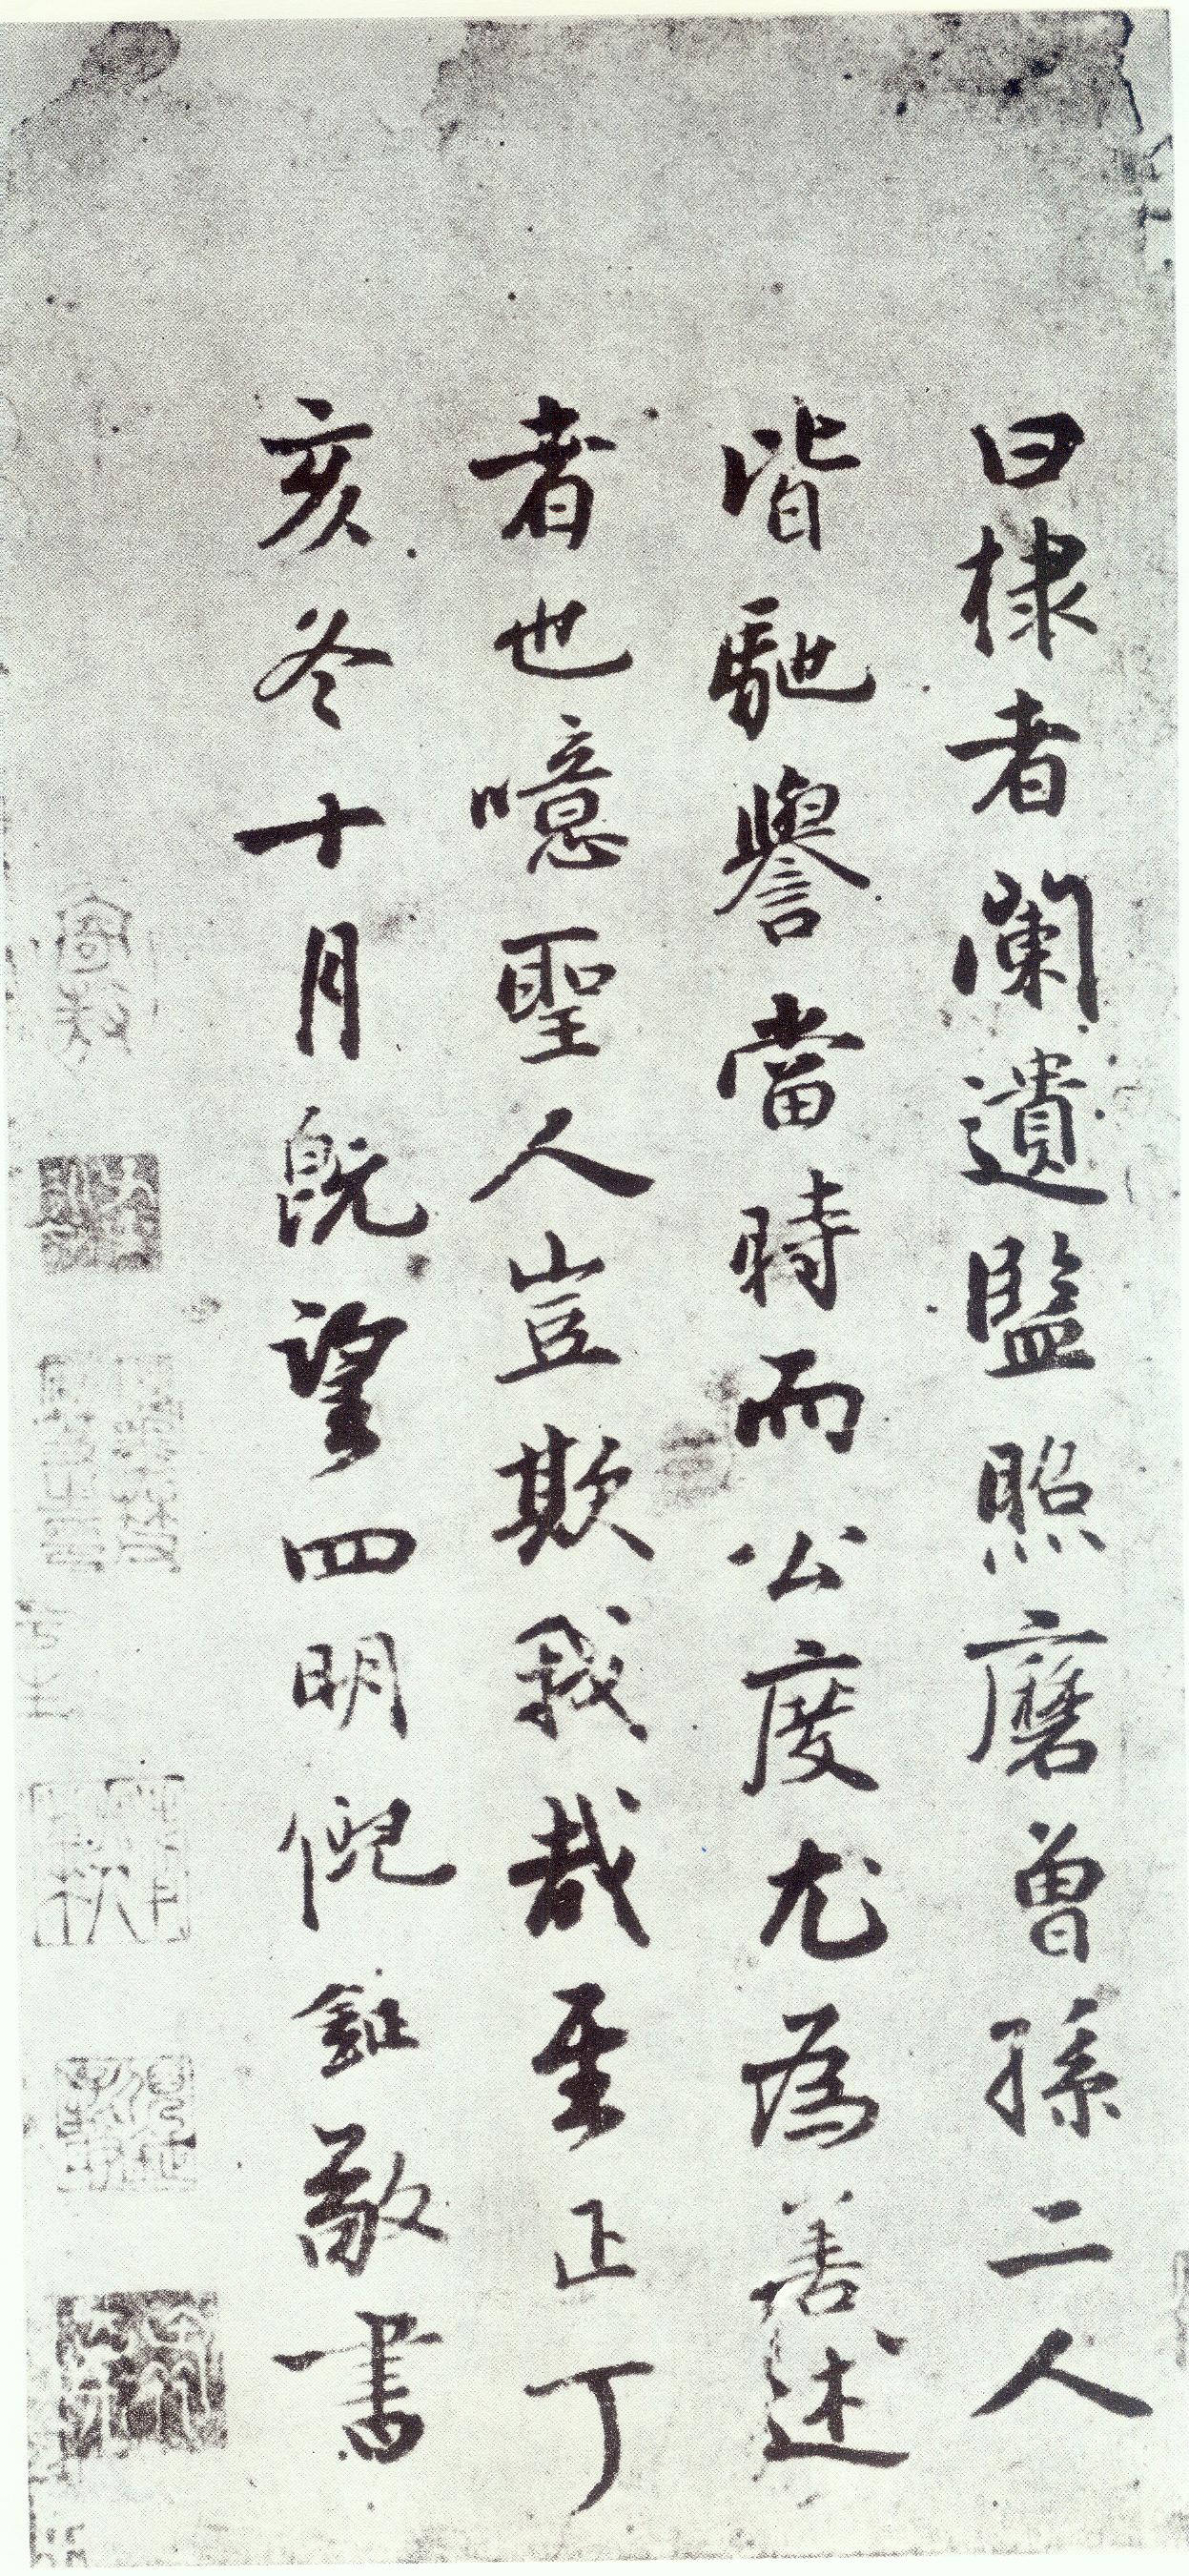 曰棣者蘭遺監照磨曾孫二人
皆馳譽當時而公度尤為善述
者也噫聖人豈欺我哉至正丁
亥冬十月既望四明倪鉦敬書